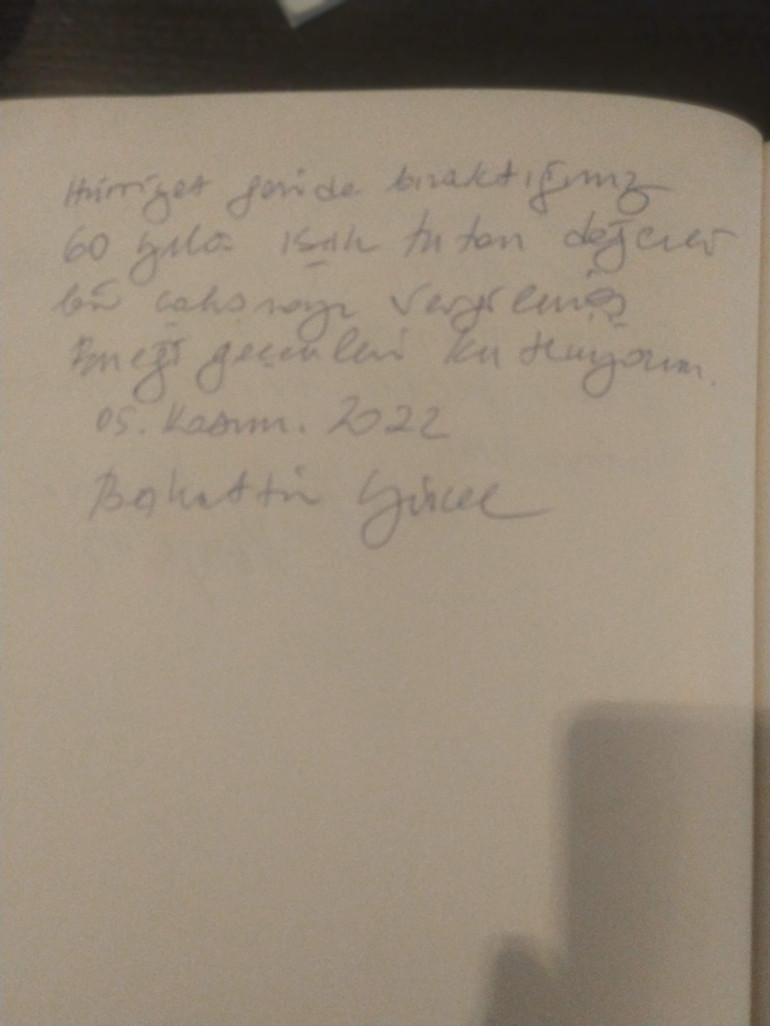 Hürriyet geride bıraktığımız
60 yıla ışık tutan değerli
bir çalışmayı sergilemiş
Emeği geçenleri kutluyorum.
05. Kasım. 2022
Bahattin Yücel